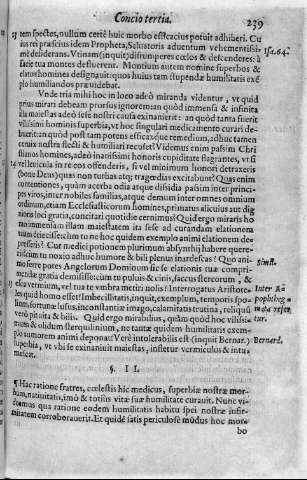 Concio tertia. 239
tem spectes, nullum certè huic morbo efficacius potuit adhiberi. Cu
ius rei præscius idem Propheta, Saluatoris aduentum vehementissi- Isa. 64.
mè desiderans. Vtinam (inquit) disrumperes cœlos & descenderes: à
facie tua montes defluerent. Montium autem nomine superbos &
elatos homines designauit: quos huius tam stupendæ humilitatis exē
plo humiliandos præuidebat.
Vnde tria mihi hoc in loco adeò miranda videntur, vt quid
prius mirari debeam prorsus ignorem: an quòd immensa & infinita
illa maiestas adeò sese nostri causa exinanierit: an quòd tanta fuerit
vilissimi hominis superbia, vt hoc singulari medicamento curari de-
buerit: an quòd post tam potens efficaxque remedium, adhuc tamen
ceruix nostra flecti & humiliari recuset? Videmus enim passim Chri
stianos homines, adeò inanissimi honoris cupiditate flagrantes, vt si
vel leuicula in re eos offenderis, si vel minimum honori detraxeris
(bone Deus) quas non turbas atque tragœdias excitabunt? Quis enim
contentiones, quàm acerba odia atque dissidia passim inter princi-
pes viros, inter nobiles familias, atque demum inter omnes omnium
ordinum, etiam Ecclesiasticorum homines, primatus alicuius aut dig
nioris loci gratia, concitari quotidie cernimus? Quid ergo miraris ho
mo immensam illam maiestatem ita sese ad curandam elationem
tuam deiecisse, cum tu ne hoc quidem exemplo animi elationem de-
presseris? Cur medici potionem plurimum absynthij habere quere-
ris, cum tu noxio adhuc humore & bili plenus inardescas? Quo ani- Simil.
mo ferre potes Angelorum Dominum sic se elationis tuæ compri-
mendæ gratia demisisse, cum tu puluis & cinis, saccus stercorum, &
esca vermium, vel tua te vmbra metiri nolis? Interrogatus Aristote- Inter A-
les quid homo esset? Imbecillitatis, inquit, exemplum, temporis spo- pophtheg
lium, fortunæ lusus, inconstantiæ imago, calamitatis trutina, reliquū
verò pituita & bilis. Quid ergo mirabilius, quàm quòd hoc vilissi- tur.
mum & olidum sterquilinium, ne tantæ quidem humilitatis exem-
plo tumorem animi deponat? Verè intolerabilis est (inquit Bernar.) Bernard.
superbia, vt vbi se exinaniuit maiestas, infletur vermiculus & intu-
mescat.
§. II.
¶ Hac ratione fratres, cœlestis hic medicus, superbiæ nostræ mor-
bum, natiuitatis, imò & totius vitæ suæ humilitate curauit. Nunc vi-
deamus qua ratione eodem humilitatis habitu spei nostræ infir-
mitatem corroborauerit. Et quidē satis periculosè mūdus hoc mor-
bo